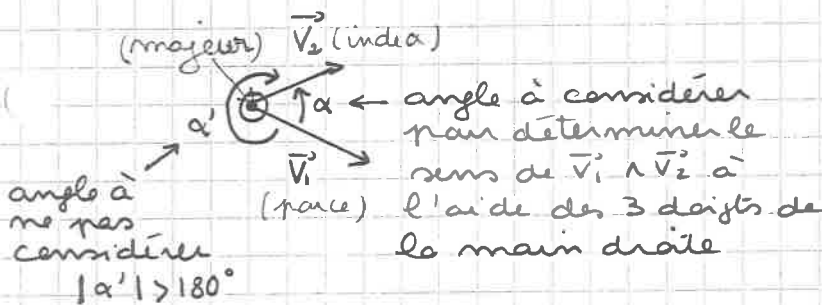 (majeur) V₂ (index)
α' α ← angle à considérer
pour déterminer le
V₁ sens de V₁ ∧ V₂ à
(pouce) l'aide des 3 doigts de
la main droite
angle à
ne pas
considérer
|α'| > 180°